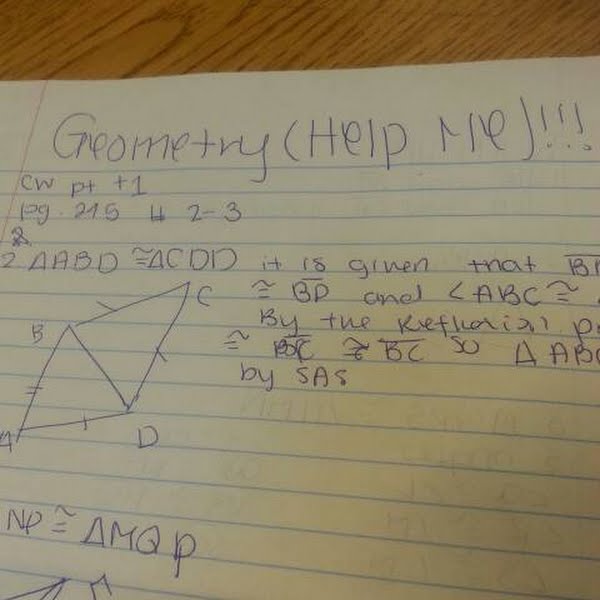 Geometry (Help Me)!!!
CW pt +1
pg. 215 # 2-3
2 ΔABD ≅ΔCDD it is given that
≅ BD and <ABC ≅
By the Reflexial
≅ ≅ BC so Δ ABC
by SAS
C
B
A
D
NP ≅ ΔMQP